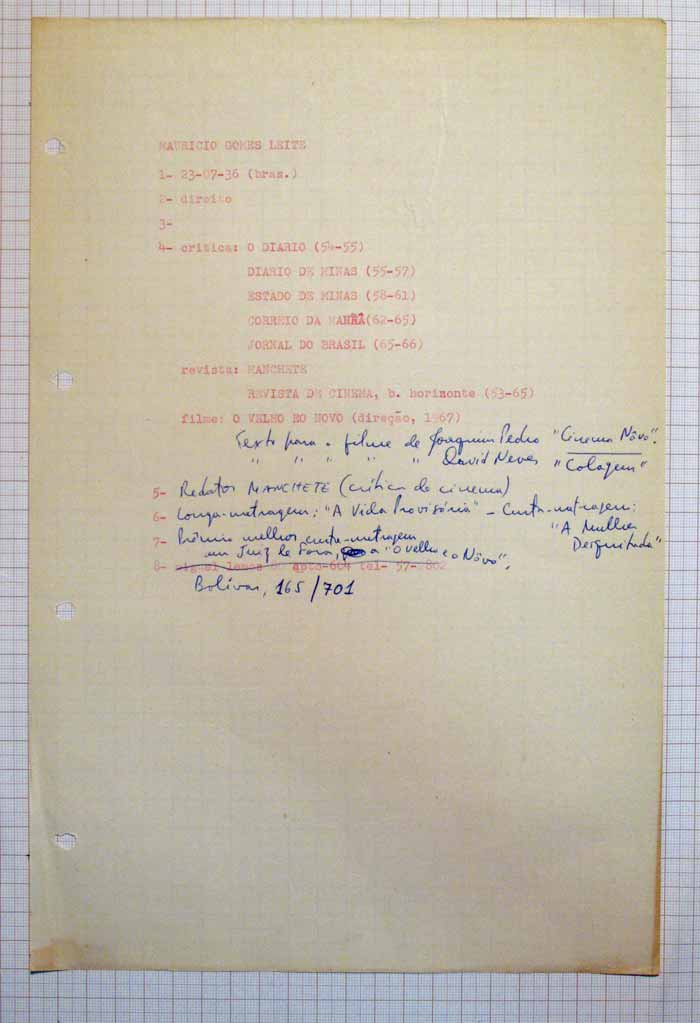 MAURICIO GOMES LEITE
1- 23-07-36 (bras.)
2- direito
3-
4- critica: O DIARIO (54-55)
DIARIO DE MINAS (55-57)
ESTADO DE MINAS (58-61)
CORREIO DA MANHÃ(62-65)
JORNAL DO BRASIL (65-66)
revista: MANCHETE
REVISTA DE CINEMA, b. horizonte (53-65)
filme: O VELHO EO NOVO (direção, 1967)
Texto para o filme de Joaquim Pedro "Cinema Nôvo".
" " " " " David Neves "Colagem"
5- Redator MANCHETE (crítica de cinema)
6- Longa-metragem: "A Vida Provisória" - Curta-metragem:
"A Mulher
Desquitada"
7- Prêmio melhor curta-metragem
em Juiz de Fora, a "O Velho e o Nôvo".
8- miguel lemos apto-604 tel- 57-2802
Bolivar, 165/701